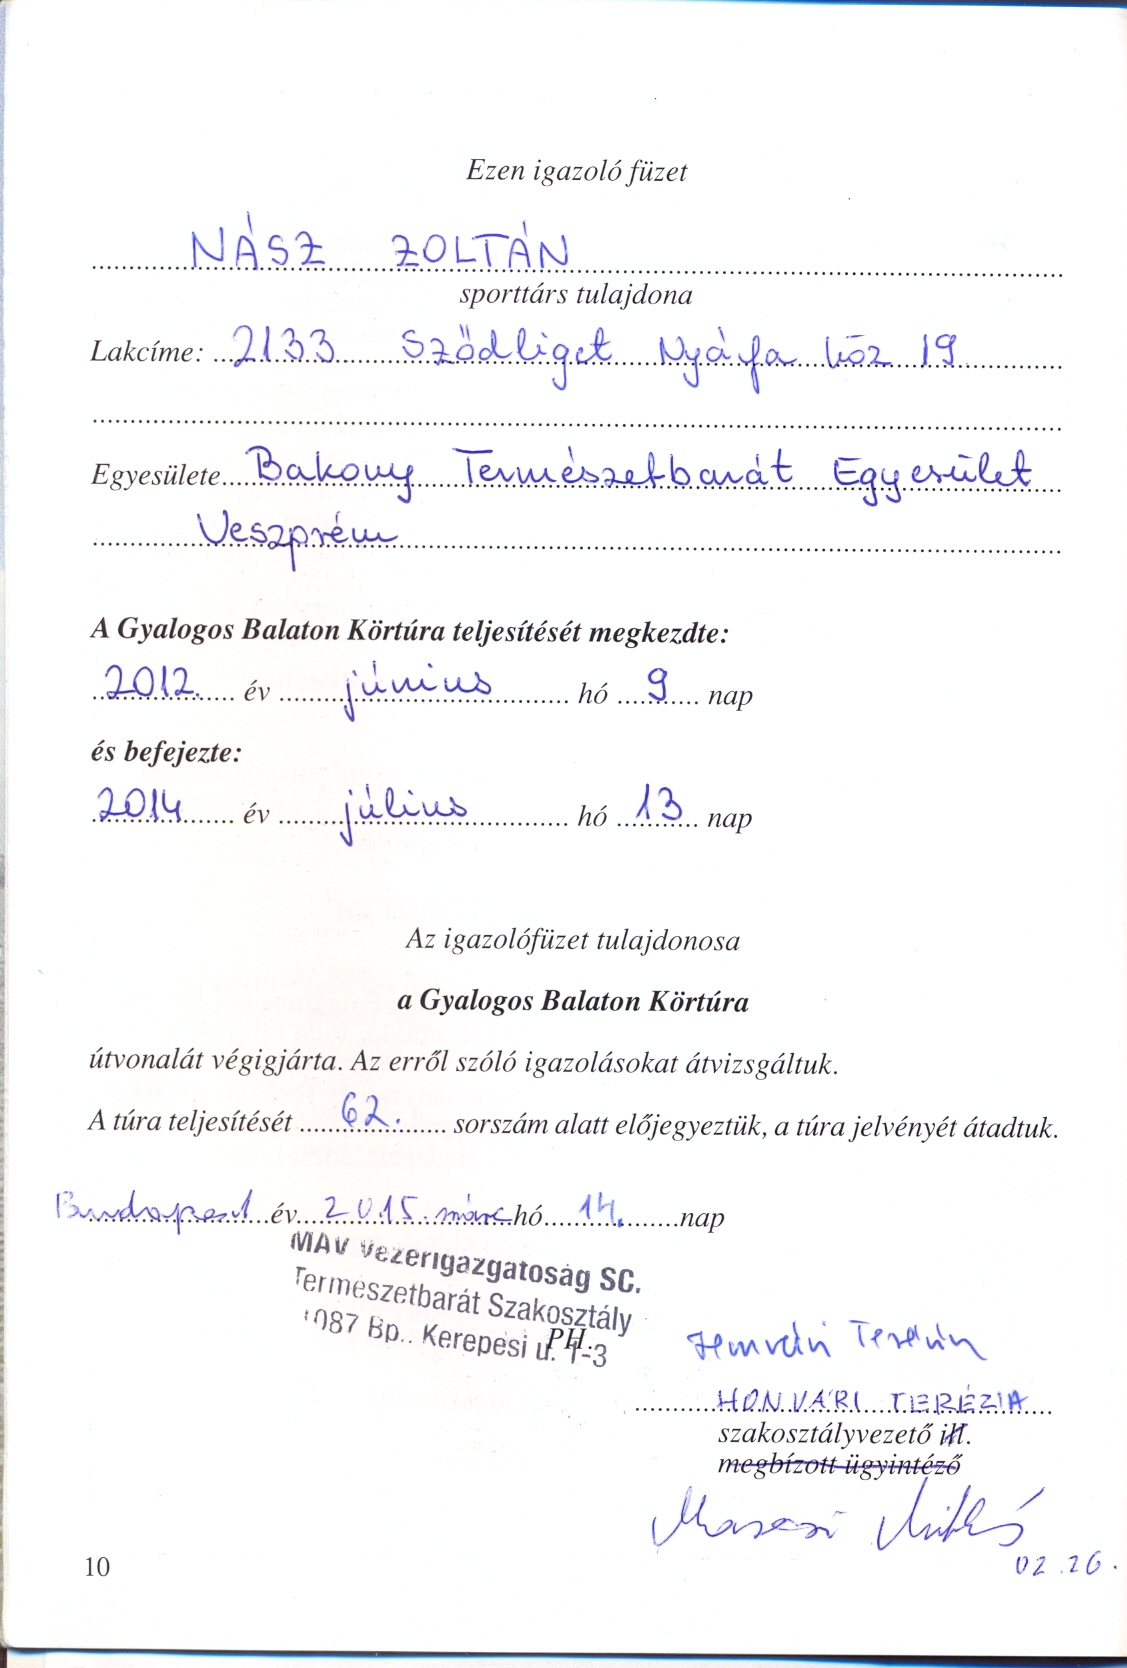 Ezen igazoló füzet
NÁSZ ZOLTÁN
sporttárs tulajdona
Lakcíme: 2133 Sződliget Nyárfa köz 19
Egyesülete Bakony Természetbarát Egyesület
Veszprém
A Gyalogos Balaton Körtúra teljesítését megkezdte:
2012. év június hó 9 nap
és befejezte:
2014 év július hó 13 nap
Az igazolófüzet tulajdonosa
a Gyalogos Balaton Körtúra
útvonalát végigjárta. Az erről szóló igazolásokat átvizsgáltuk.
A túra teljesítését 62. sorszám alatt előjegyeztük, a túra jelvényét átadtuk.
Budapest év 2015. márc hó 14. nap
MÁV Vezérigazgatóság SC.
Természetbarát Szakosztály
1087 Bp.. Kerepesi u. 1-3
PH.
HONVÁRI TERÉZIA
szakosztályvezető ill.
megbízott ügyintéző
02.26.
10